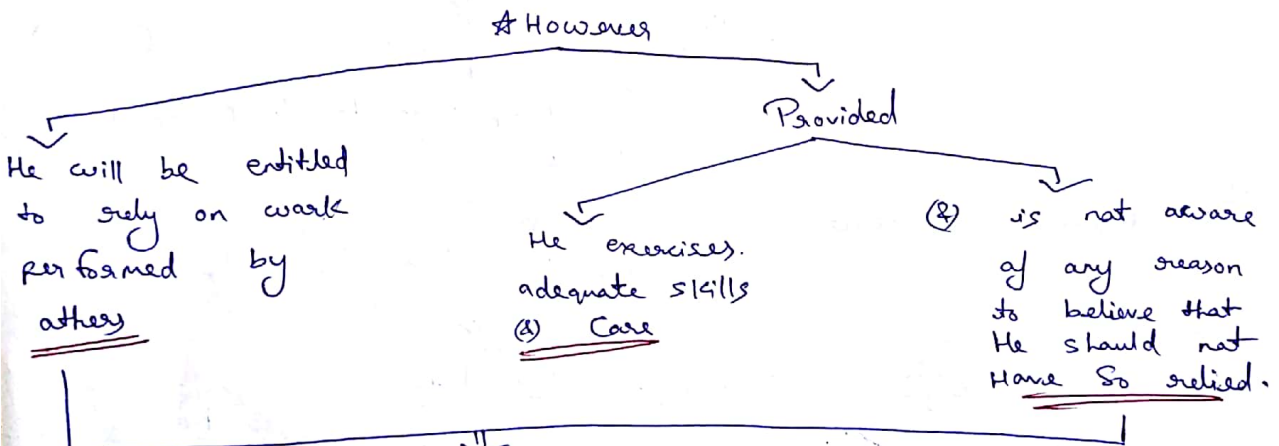 ☆ However
Provided
He will be entitled
to rely on work
performed by
others
He exercises.
adequate skills
(&) Care
(&) is not aware
of any reason
to believe that
He should not
Have So relied.